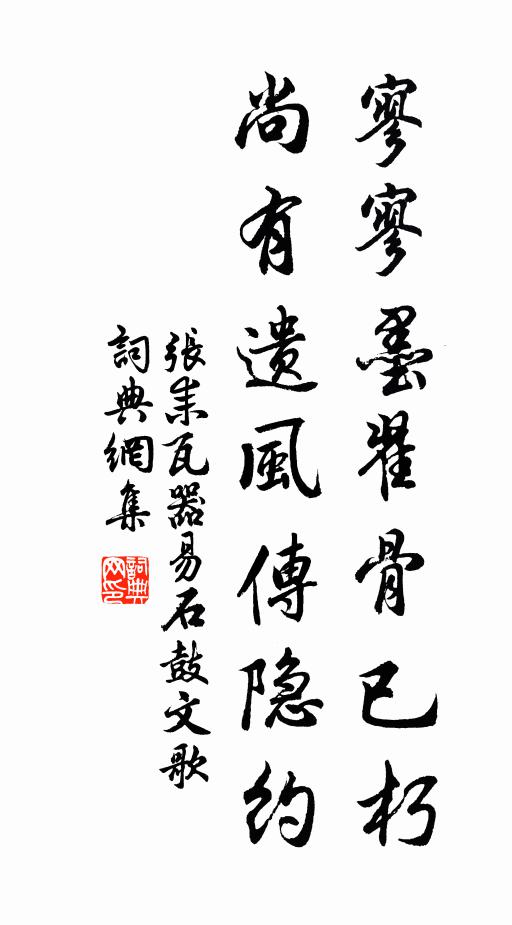 寥寥墨翟骨已朽
尚有遺風傳隐約
張耒瓦器易石鼓文歌
詞典網集
詞典
网印